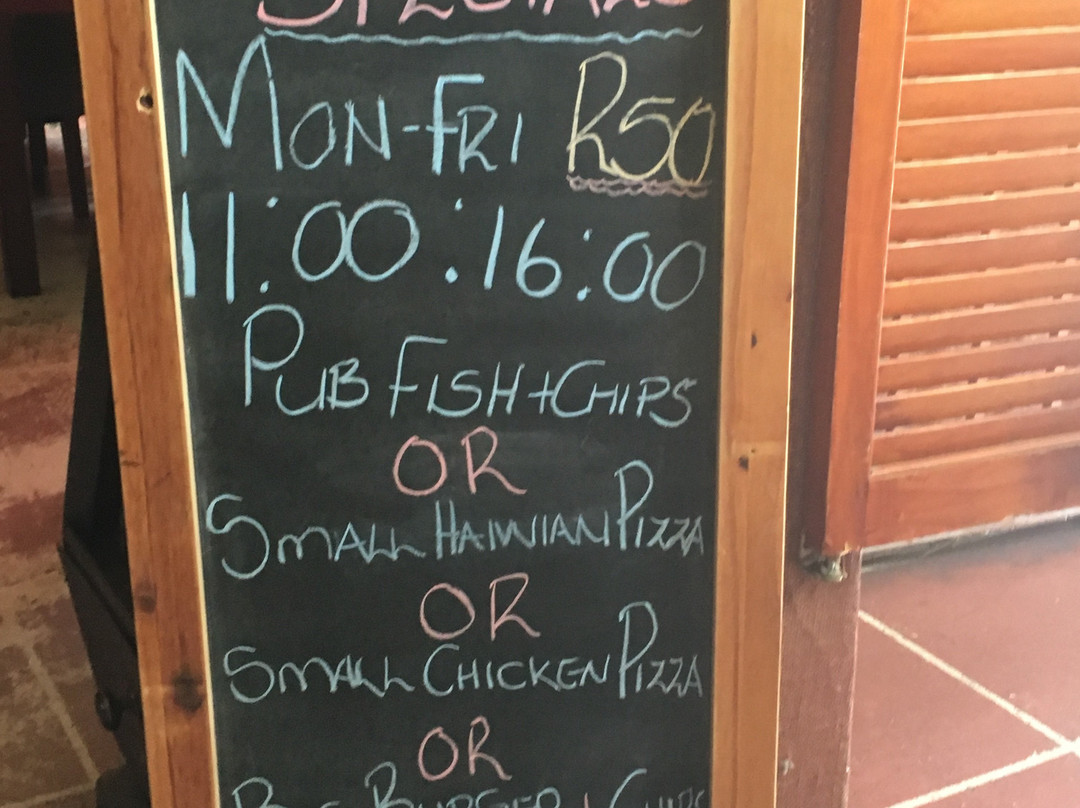 SPECIALS
MON-FRI R50
11:00 : 16:00
PUB FISH + CHIPS
OR
SMALL HAIWIAN PIZZA
OR
SMALL CHICKEN PIZZA
OR
BURGER + CHIPS